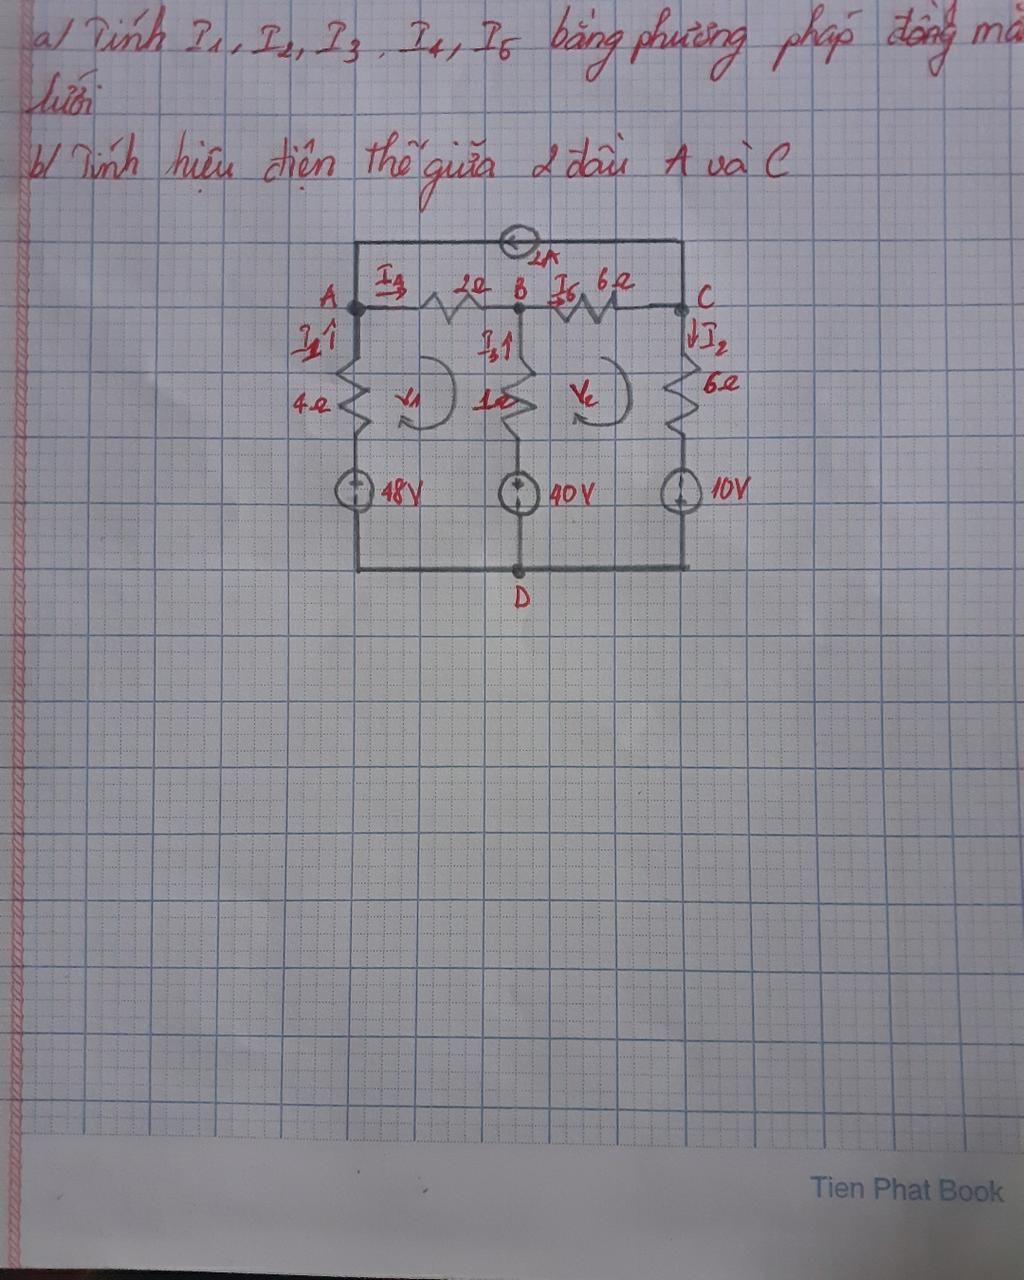 a/ Tính I1, I2, I3, I4, I5 bằng phương pháp dòng mắ
lưới
b/ Tính hiệu điện thế giữa 2 đầu A và C
2A
I4 2Ω B I5 6Ω
A C
I1 I3 I2
4Ω V1 1Ω V2 6Ω
48V 40V 10V
D
Tien Phat Book